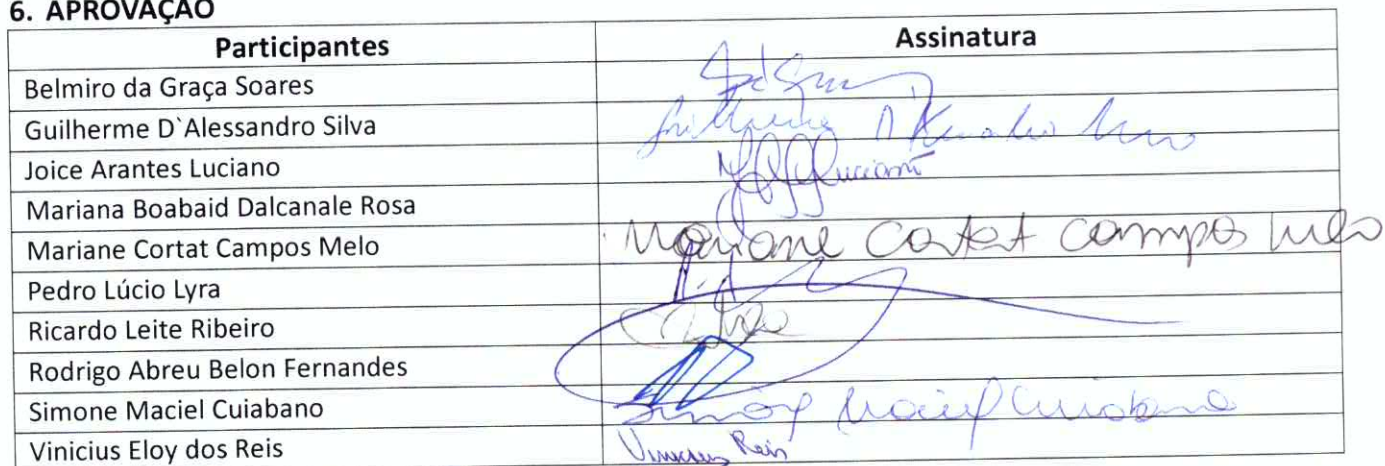 6. APROVAÇÃO
Participantes Assinatura
Belmiro da Graça Soares
Guilherme D`Alessandro Silva Guilherme
Joice Arantes Luciano Luciano
Mariana Boabaid Dalcanale Rosa
Mariane Cortat Campos Melo Mariane Cortat Campos Melo
Pedro Lúcio Lyra
Ricardo Leite Ribeiro
Rodrigo Abreu Belon Fernandes
Simone Maciel Cuiabano Simone Maciel Cuiabano
Vinicius Eloy dos Reis Vinicius Reis